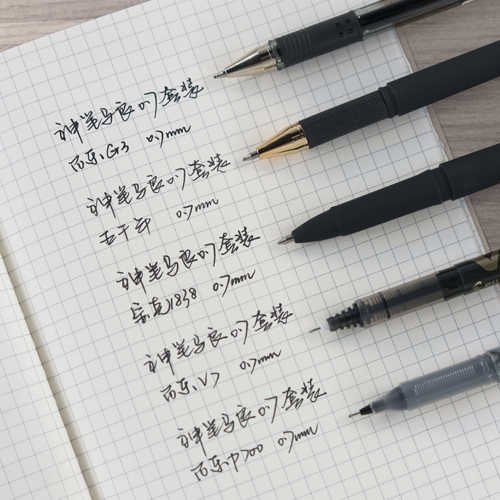 神笔马良0.7套装
百乐G3 0.7mm
神笔马良0.7套装
五千年 0.7mm
神笔马良0.7套装
宝克1838 0.7mm
神笔马良0.7套装
百乐V7 0.7mm
神笔马良0.7套装
百乐P700 0.7mm